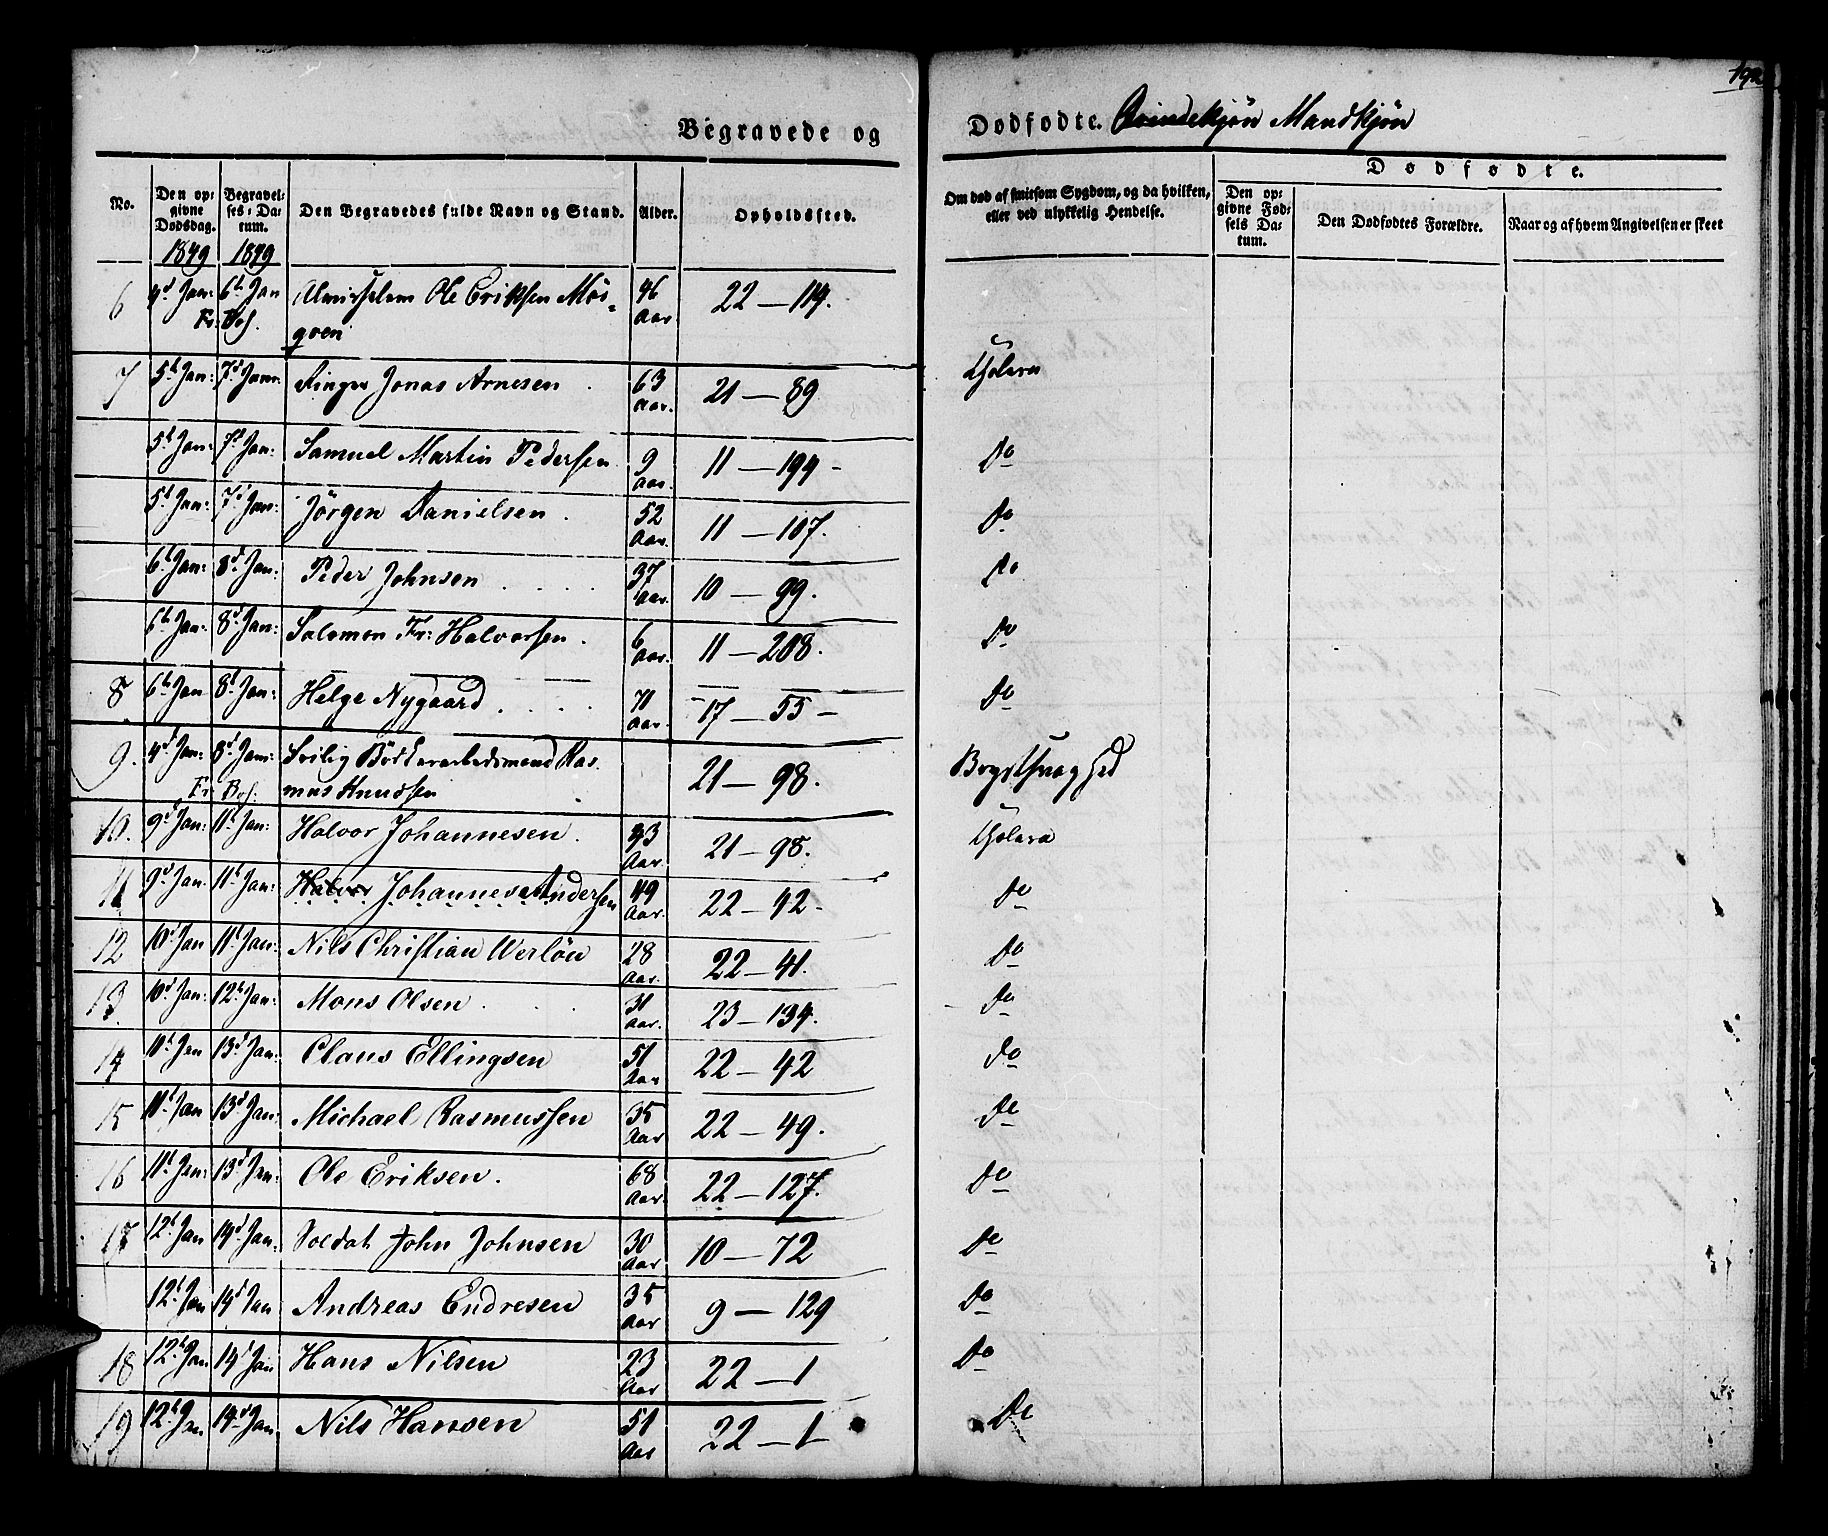 192
Begravede og Dødfødte. Qvindekjøn Mandkjøn
No. | Den opgivne Dødsdag. 1849 | Begravelses-Datum. 1849 | Den Begravedes fulde Navn og Stand. | Alder. | Opholdssted. | Om død af smitsom Sygdom, og da hvilken, eller ved ulykkelig Hendelse. | Dødfødte. | Den opgivne Fødsels Datum. | Den Dødfødtes Forældre. | Naar og af hvem Angivelsen er skeet
6 | 4d Jan: | 6t Jan | Almisselem Ole Eriksen | 46 Aar | 22 — 119.
Fr: Bof.
7 | 5t Jan: | 7d Janr: | Ringer Jonas Arnesen | 63 Aar. | 21 — 89 | Cholera
5t Jan: | 7d Jan: | Samuel Martin Pedersen | 9 Aar. | 11 — 194 - | Do
5t Jan: | 7d Jan: | Jörgen Danielsen | 52 Aar. | 11 — 107. | Do
6t Jan: | 8d Jan: | Peder Johnsen | 37 Aar. | 10 — 99. | Do
6t Jan: | 8d Jan: | Salomon Fr: Halvorsen | 6 Aar. | 11 — 208. | Do
8 | 6t Jan | 8d Jan: | Helge Nygaard | 71 Aar. | 17 — 55 - | Do
9. | 4d Jan: | 8d Janr: | Svilig Bödkerarbeidsmand Ras- | 21 — 98. | Brystsvaghed
Fr: Bof: | mus Knudsen
10. | 9d Jan: | 11t Jan: | Halvor Johannesen | 43 Aar. | 21 — 98. | Cholera
11 | 9d Jan. | 11t Jan: | Halvor Johannes Andersen | 49 Aar. | 22 — 42 - | Do
12 | 10d Jan | 11t Jan: | Nils Christian Werløn | 28 Aar. | 22 — 41. | Do
13. | 10d Jan: | 12t Jan: | Mons Olsen | 31 Aar. | 23 — 134. | Do
14 | 11t Jan | 13d Jan: | Claus Ellingsen | 51 Aar | 22 — 42 | Do
15 | 11t Jan | 13d Jan: | Michael Rasmussen | 35 Aar | 22 — 49. | Do
16 | 11t Jan: | 13d Jan | Ole Eriksen. | 68 Aar | 22 — 127. | Do
17 | 12t Jan | 14d Jan: | Soldat John Johnsen | 30 Aar | 10 — 72 | Do
12t Jan | 14d Jan | Andreas Endresen | 35 Aar | 9 — 129 | Do
18 | 12t Jan | 14d Jan | Hans Nilsen | 23 Aar | 22 — 1 | Do
19 | 12t Jan | 14d Jan | Nils Hansen | 51 Aar | 22 — 1 | Do